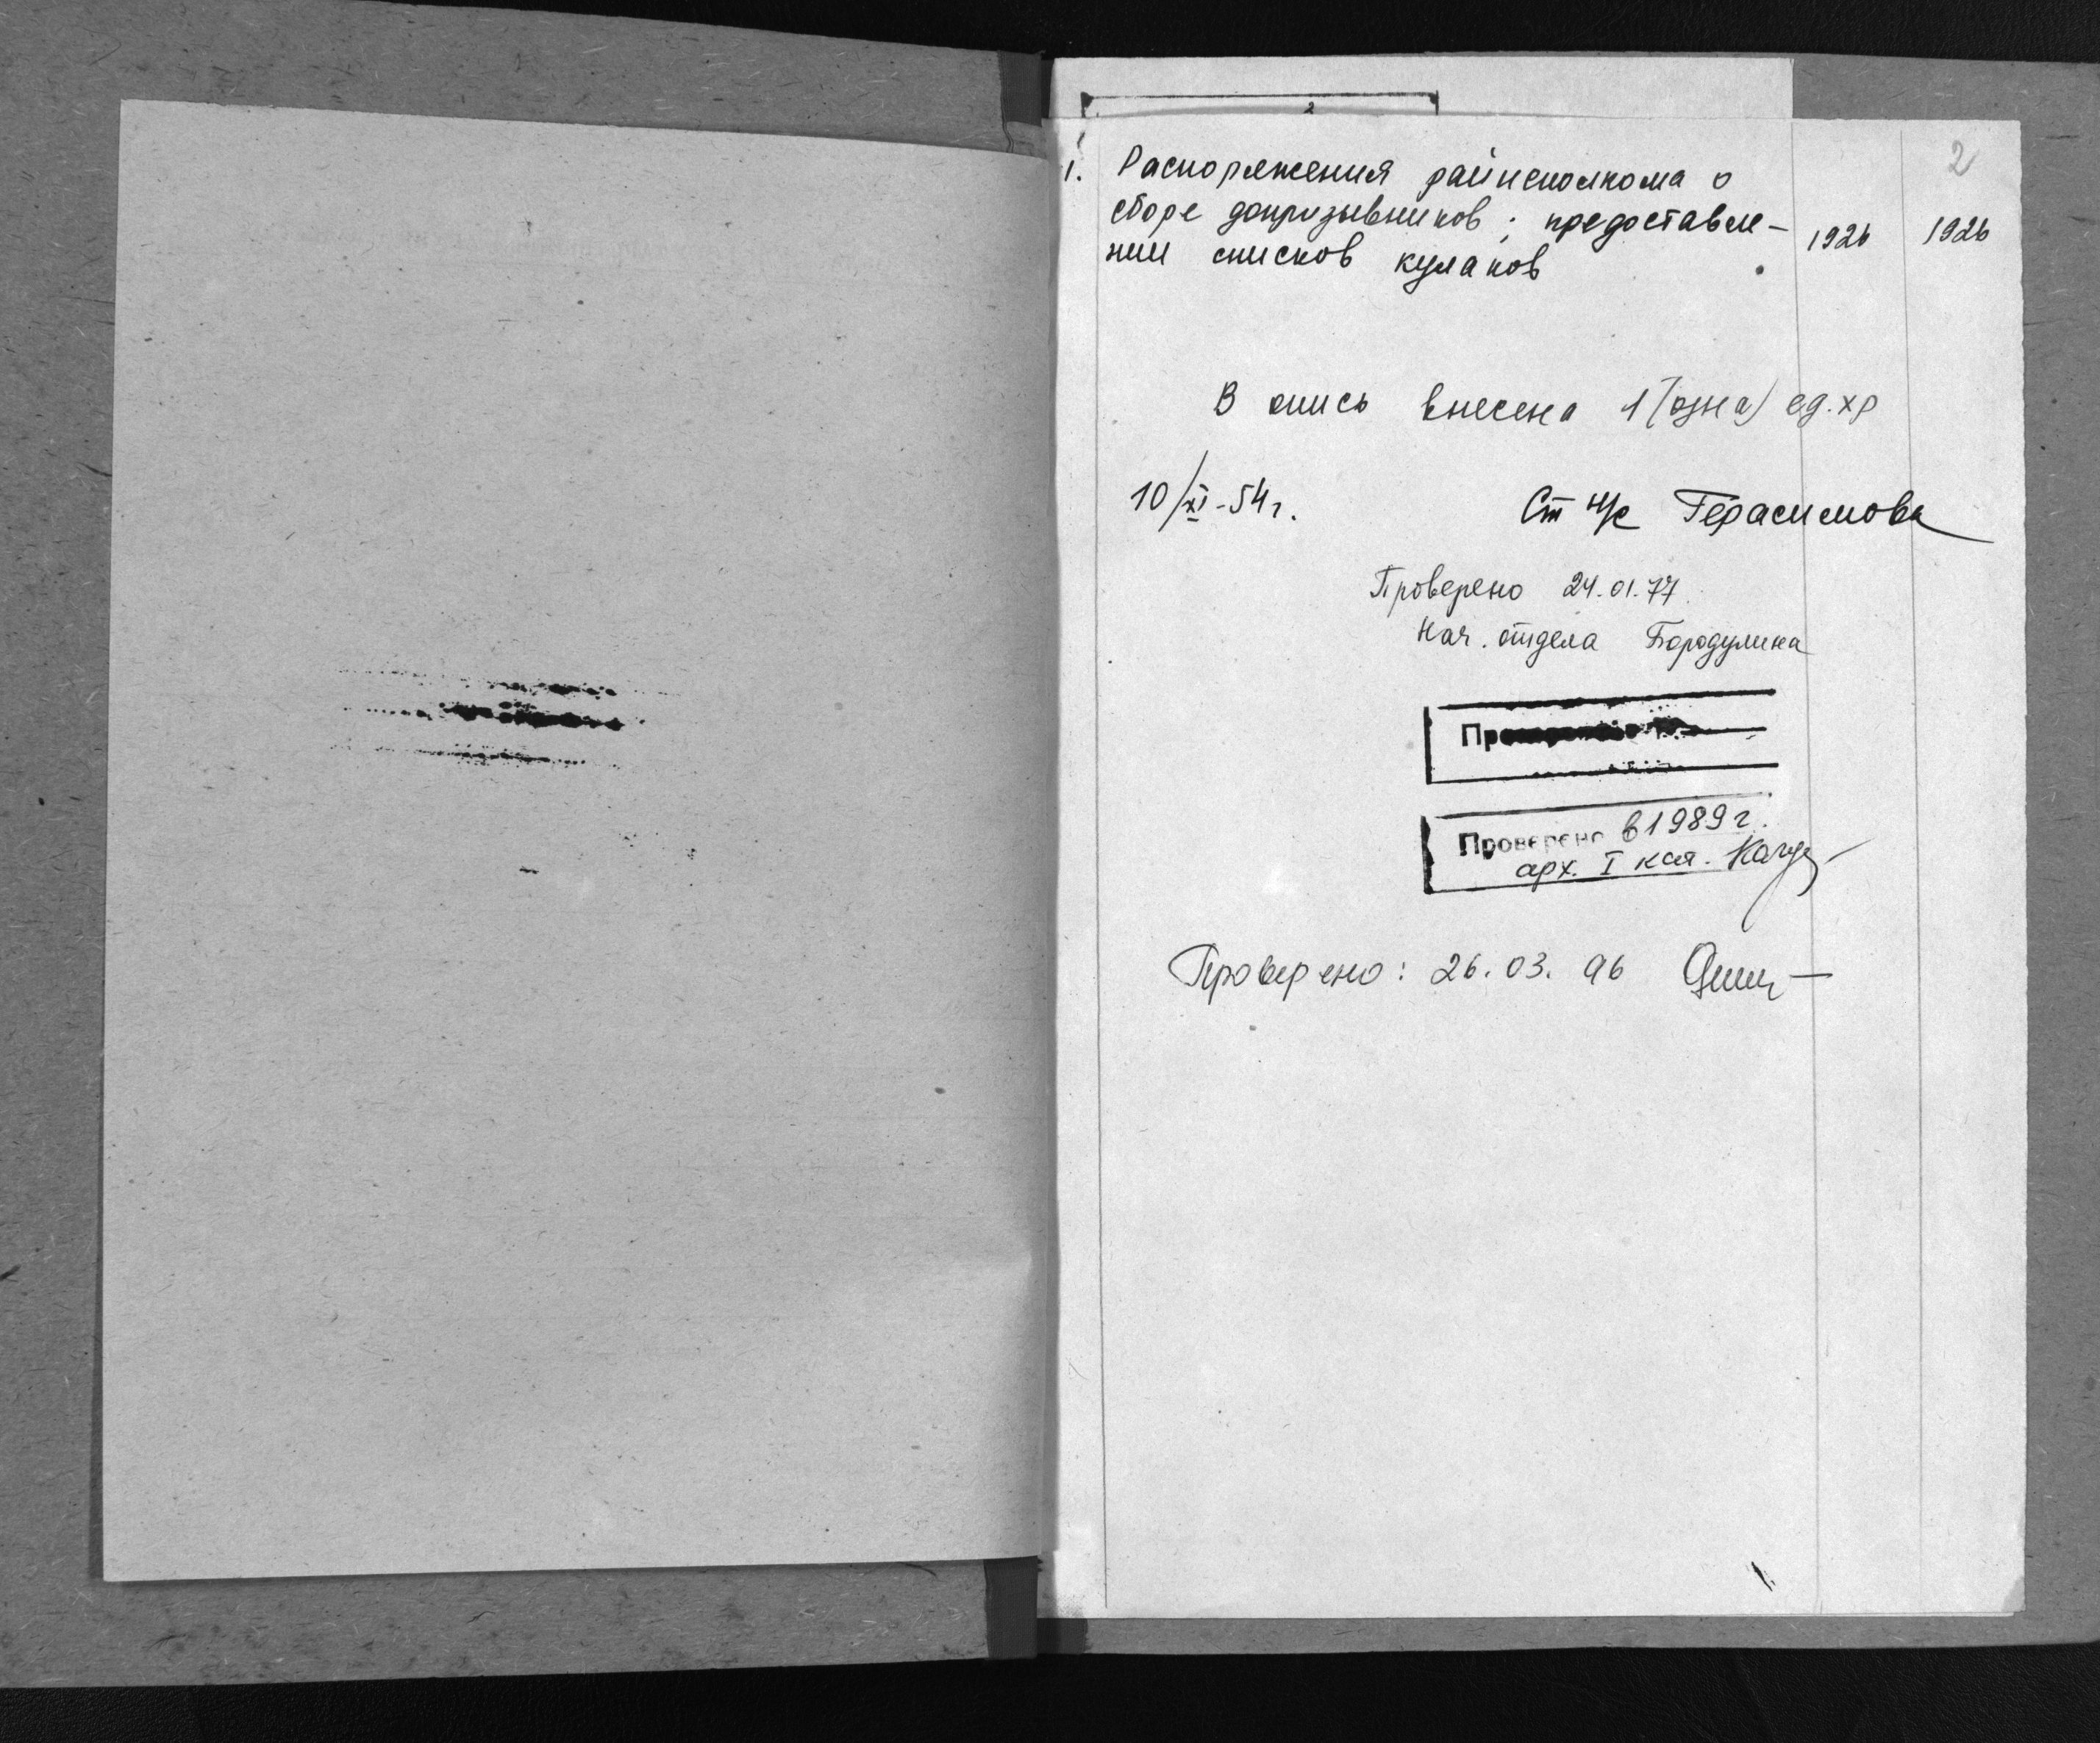 2
1. Распоряжения райисполкома о
сборе допризывников; предоставле-
нии списков кулаков
1926 1926
В опись внесена 1 (одна) ед. хр
10/XI-54г.
Ст н/с Герасимова
Проверено 24.01.77
Нач. отдела Бородулина
Проверено в 1989 г.
арх. I кат.
Проверено: 26.03.96